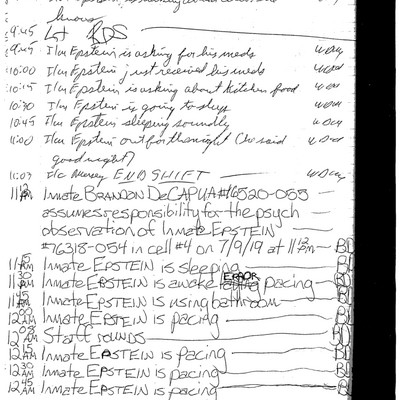 nervous
9:45 Lt RDS
9:45 I/m Epstein is asking for his meds
10:00 I/m Epstein just received his meds
10:15 I/m Epstein is asking about kitchen food
10:30 I/m Epstein is going to sleep
10:45 I/m Epstein sleeping soundly
11:00 I/m Epstein out for the night (he said
good night)
11:03 END SHIFT
11:12 PM Inmate BRANDON DeCAPUA #76520-055
assumes responsibility for the psych
observation of Inmate EPSTEIN
#76318-054 in cell #4 on 7/9/19 at 11:12 pm BD
11:15 PM Inmate EPSTEIN is sleeping BD
11:30 PM Inmate EPSTEIN is awake ERROR pacing BD
11:45 PM Inmate EPSTEIN is using bathroom BD
12:00 AM Inmate EPSTEIN is pacing BD
12:08 AM Staff rounds BD
12:15 AM Inmate EPSTEIN is pacing BD
12:30 AM Inmate EPSTEIN is pacing BD
12:45 AM Inmate EPSTEIN is pacing BD